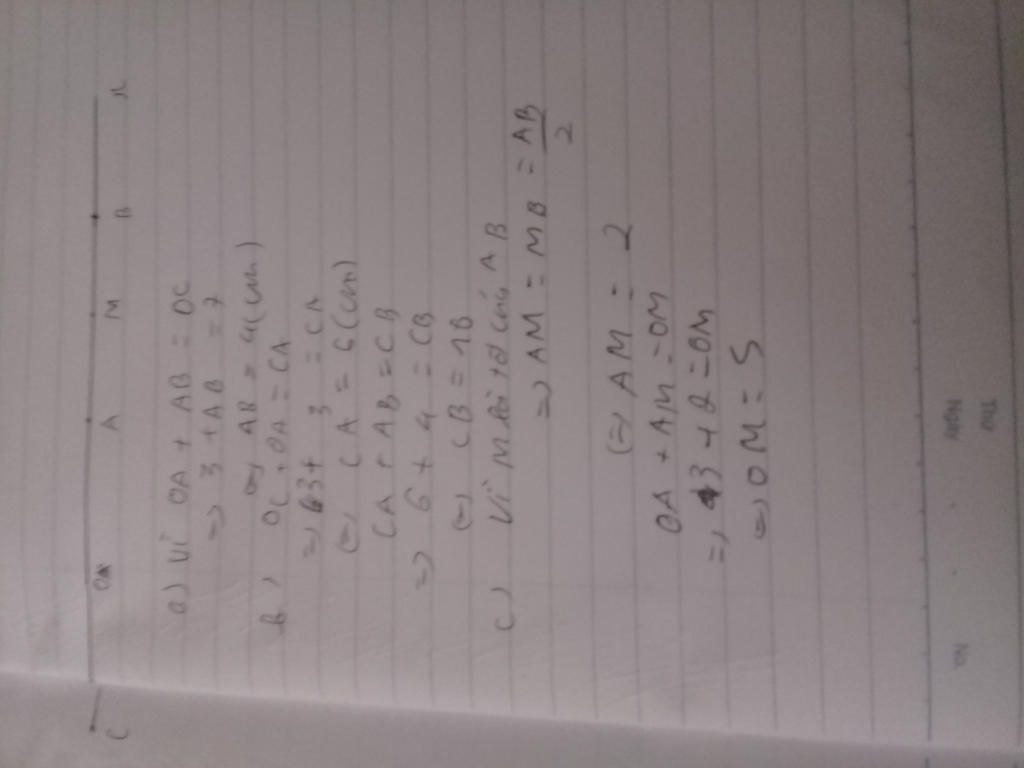 C O A M B x
a) Vì OA + AB = OC
=> 3 + AB = 7
=> AB = 4 (cm)
b) OC + OA = CA
=> 3 + 3 = CA
(=) CA = 6 (cm)
CA + AB = CB
=> 6 + 4 = CB
(=) CB = 10
c) Vì M là t đ của AB
=> AM = MB = AB/2
(=) AM = 2
OA + AM = OM
=> 3 + 2 = OM
=> OM = 5
Thứ
Ngày
No.